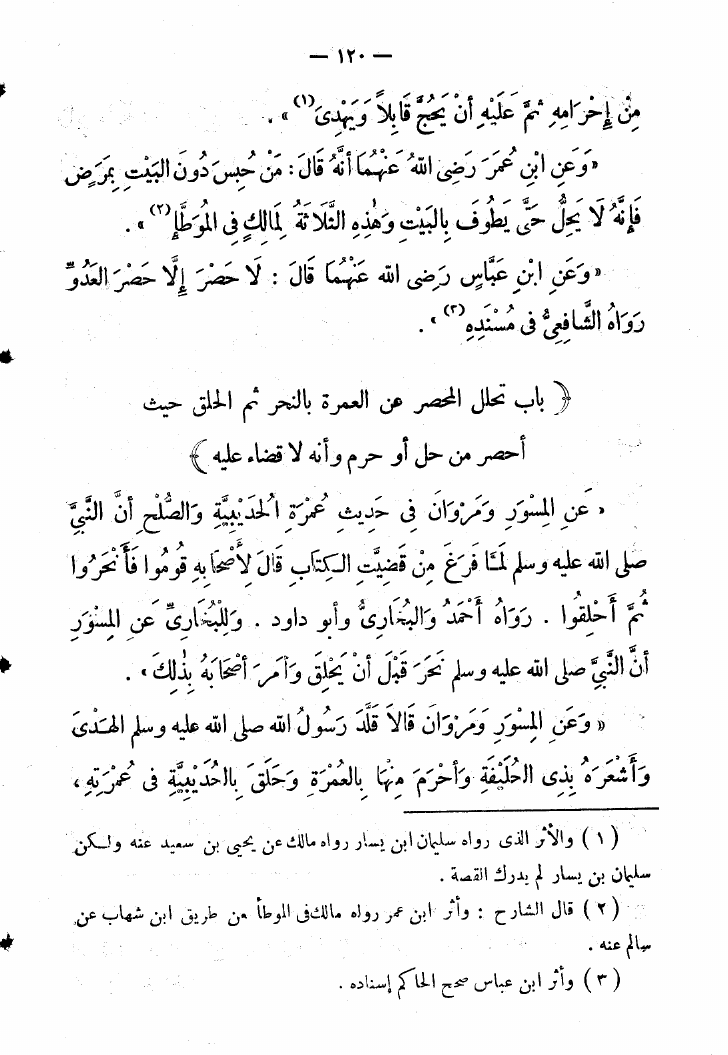 — ١٢٠ —
مِنْ إِحْرَامِهِ ثُمَّ عَلَيْهِ أَنْ يَحُجَّ قَابِلاً وَيَهْدِىَ (١) » .
« وَعَنِ ابْنِ عُمَرَ رَضِى اللهُ عَنْهُمَا أَنَّهُ قَالَ : مَنْ حُبِسَ دُونَ الْبَيْتِ بِمَرَضٍ
فَإِنَّهُ لَا يَحِلُّ حَتَّى يَطُوفَ بِالْبَيْتِ وَهٰذِهِ الثَّلَاثَةُ لِمَالِكٍ فِى الْمُوَطَّإِ (٢) » .
« وَعَنِ ابْنِ عَبَّاسٍ رَضِى الله عَنْهُمَا قَالَ : لَا حَصْرَ إِلَّا حَصْرَ الْعَدُوِّ
رَوَاهُ الشَّافِعِىُّ فِى مُسْنَدِهِ (٣) » .
﴿ باب تحلل المحصر عن العمرة بالنحر ثم الحلق حيث
أحصر من حل أو حرم وأنه لا قضاء عليه ﴾
« عَنِ الْمِسْوَرِ وَمَرْوَانَ فِى حَدِيثِ عُمْرَةِ الْحُدَيْبِيَّةِ وَالصُّلْحِ أَنَّ النَّبِىَّ
صلى الله عليه وسلم لَمَّا فَرَغَ مِنْ قَضِيَّتِ الْكِتَابِ قَالَ لِأَصْحَابِهِ قُومُوا فَأَنْحَرُوا
ثُمَّ أَحْلِقُوا . رَوَاهُ أَحْمَدُ وَالْبُخَارِىُّ وأبو داود . وَلِلْبُخَارِىِّ عَنِ الْمِسْوَرِ
أَنَّ النَّبِىَّ صلى الله عليه وسلم نَحَرَ قَبْلَ أَنْ يَحْلِقَ وَأَمَرَ أَصْحَابَهُ بِذٰلِكَ » .
« وَعَنِ الْمِسْوَرِ وَمَرْوَانَ قَالاَ قَلَّدَ رَسُولُ الله صلى الله عليه وسلم الْهَدْىَ
وَأَشْعَرَهُ بِذِى الْحُلَيْفَةِ وَأَحْرَمَ مِنْهَا بِالْعُمْرَةِ وَحَلَقَ بِالْحُدَيْبِيَّةِ فِى عُمْرَتِهِ ،
( ١ ) والأثر الذى رواه سليمان ابن يسار رواه مالك عن يحيى بن سعيد عنه ولكن
سليمان بن يسار لم يدرك القصة .
( ٢ ) قال الشارح : وأثر ابن عمر رواه مالك فى الموطأ من طريق ابن شهاب عن
سالم عنه .
( ٣ ) وأثر ابن عباس صحح الحاكم إسناده .